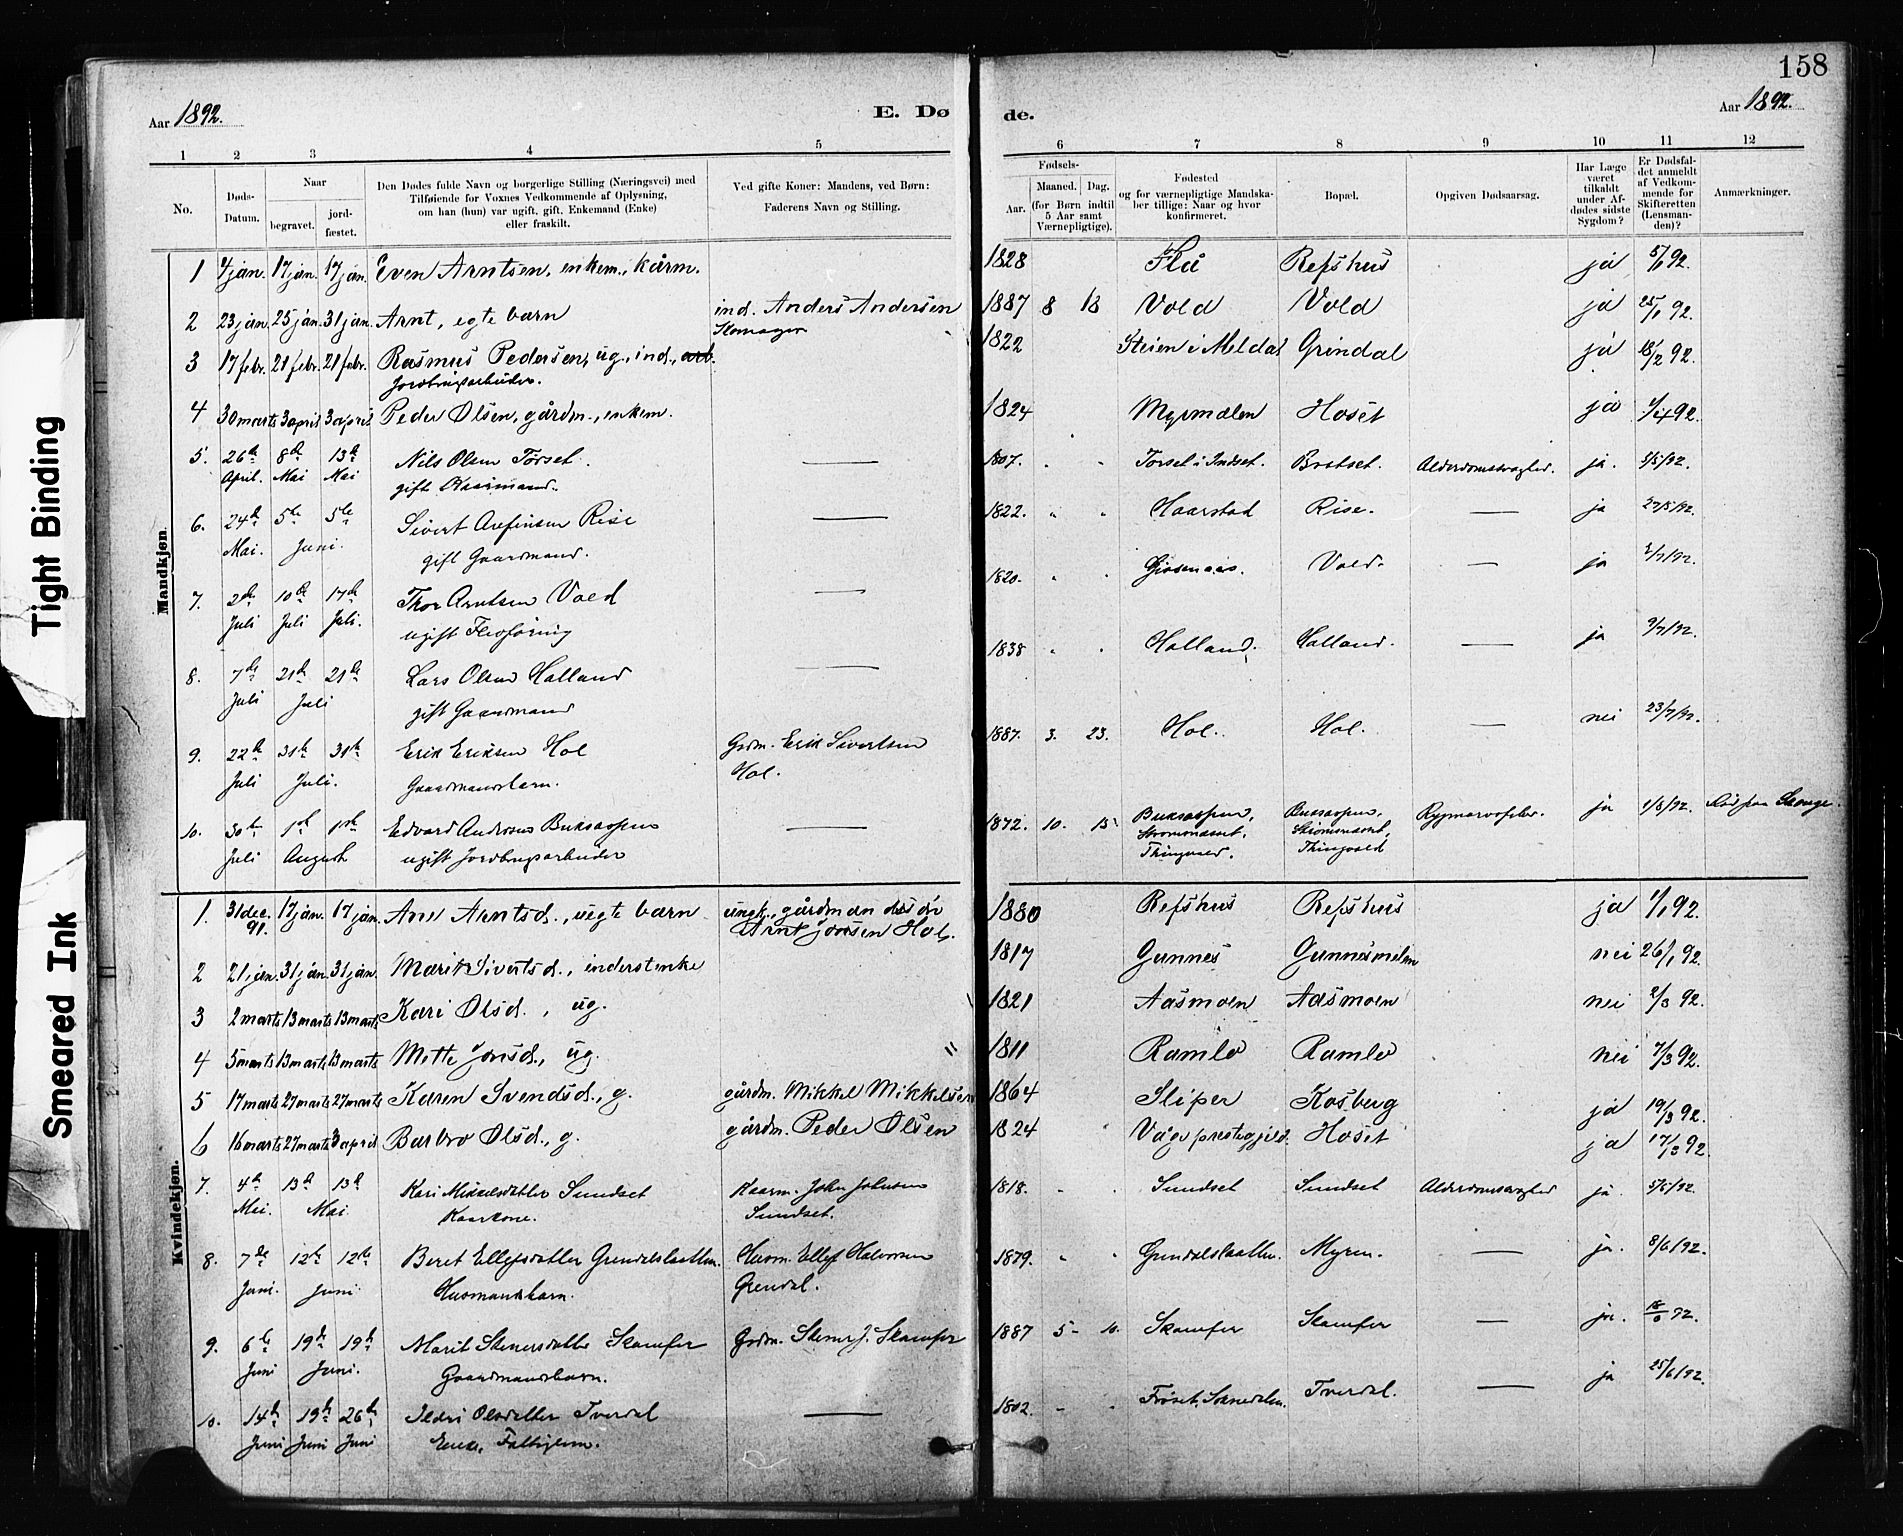 158
Aar 1892.
E. Dø
de.
Aar 1892.
1 2 3 4 5 6 7 8 9 10 11 12
No.
Døds-Datum.
Naar
begravet.
jord-fæstet.
Den Dødes fulde Navn og borgerlige Stilling (Næringsvei) med
Tilføiende for Voxnes Vedkommende af Oplysning,
om han (hun) var ugift, gift, Enkemand (Enke)
eller fraskilt.
Ved gifte Koner: Mandens, ved Børn:
Faderens Navn og Stilling.
Fødsels-
Aar. Maaned. Dag.
(for Børn indtil
5 Aar samt
Værnepligtige).
Fødested
og for værnepligtige Mandska-
ber tillige: Naar og hvor
konfirmeret.
Bopæl.
Opgiven Dødsaarsag.
Har Læge
været
tilkaldt
under Af-
dødes sidste
Sygdom?
Er Dødsfal-
det anmeldt
af Vedkom-
mende for
Skifteretten
(Lensman-
den)?
Anmærkninger.
Mandkjøn.
1 4 jan. 17 jan. 17 jan. Even Arntsen, enkem., kårm. 1828 Flå Refshus ja 5/1 92.
2 23 jan. 25 jan. 31 jan. Arnt, egte barn ind. Anders Andersen 1887 8 13 Vold Vold ja 25/1 92.
Skomager
3 17 febr. 21 febr. 21 febr. Rasmus Pedersen, ug., ind., arb. 1822 Steien i Meldal Grindal ja 18/2 92.
Jordbrugsarbeider.
4 30 marts 3 april 3 april Peder Olsen, gårdm., enkem. 1824 Myrmælen Hoset ja 1/4 92.
5. 26de 8de 13de Nils Olsen Torset. — 1807. Torset i Indset. Bratset. Alderdomssvaghed. ja. 5/5/92.
April. Mai Mai gift Kaarmand.
6. 24de 5te 5te Sivert Arfinsen Rise — 1822. Haarstad Rise. — ja 27/5/92.
Mai. Juni. gift Gaardmand.
7. 2de 10de 17de Thor Arntsen Vold — 1820. Vold. — ja 2/7/92.
Juli Juli Juli. ugift
8. 7de 21de 21de Lars Olsen Halland — 1838 Halland. Halland. — ja 9/7/92.
Juli Juli gift Gaardmand
9. 22de 31te 31te Erik Eriksen Hol Grdm. Erik Sivertsen 1887. 3. 23. Hol. Hol. — nei 23/7/92.
Juli Juli. Gaardmandsbarn. Hol.
10. 30te 1ste 1ste Edvard Andersen Buksaspen — 1872. 10. 15 Buksaspen, Buksaspen, Rygmarvsfeber. ja 1/8/92.
Juli August ugift Jordbrugsarbeider Strømsnæset, Strømsnæset,
Thingvold. Thingvold
Kvindekjøn.
1. 31 dec. 91. 17 jan. 17 jan. Ane Arntsd., uegte barn ungk., gårdmandssøn 1880 Refshus Refshus ja 1/1 92.
Arnt Jonsen Hol.
2 21 jan. 31 jan. 31 jan. Marit Sivertsd., inderstenke 1817 Gunnes Gunnesmelen nei 26/1 92.
3 2 marts 13 marts 13 marts Kari Olsd., ug. 1821 Aasmoen Aasmoen nei 2/3 92.
4 5 marts 13 marts 13 marts Mette Jonsd., ug. 1811 Ramlo Ramlo nei 7/3 92.
5 17 marts 27 marts 27 marts Karen Svendsd., g. gårdm. Mikkel Mikkelsen 1864 Sliper Kosberg ja 19/3 92.
6 16 marts 27 marts 3 april Barbro Olsd., g. gårdm. Peder Olsen 1824 Vågå prestegjeld. Hoset ja 17/3 92.
7. 4de 13de 13de Kari Mikkelsdatter Sundset Kaarm. John Johnsen 1818. Sundset Sundset Alderdomssvaghed ja 5/5/92.
Mai. Mai. Kaarkone. Sundset.
8. 7de 12te 12te Beret Ellefsdatter Grendalslætten. Husm. Ellef Halvorsen 1879. Grendalslætten. Myren. — ja. 8/6/92.
Juni. Juni Husmandsbarn. Grendal.
9. 6te 19de 19de Marit Stenersdatter Skamfer Grdm. Stener J. Skamfer 1887 5 10. Skamfer Skamfer — ja. 18/6 92.
Juni Juni. Gaardmandsbarn.
10. 14de 19de 26de Ildri Olsdatter Tverdal — 1802. Frøset, Soknedalen. Tverdal. — ja 25/6/92.
Juni Juni Juni Enke, Fattiglem.
Tight Binding
Smeared Ink